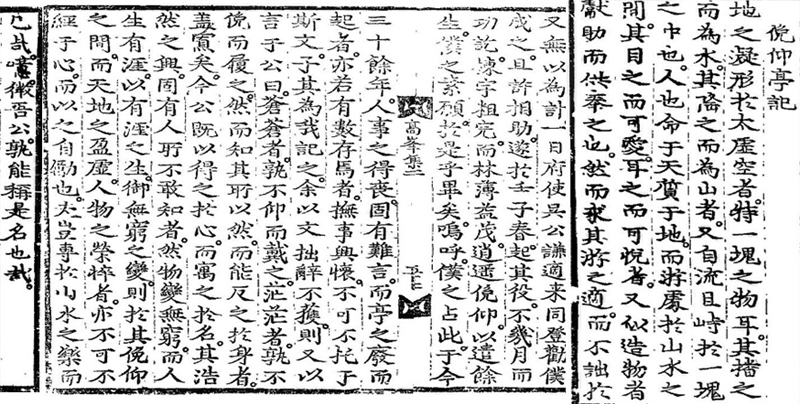 俛仰亭記
地之凝形於太虛空者特一塊之物耳其播之
而為水其隆之而為山者又自流且峙於一塊
之中也人也命于天質于地而游處於山水之
間其目之而可愛耳之而可悅者又似造物者
獻助而供奉之也然而求其游之適而不詘於
又無以為計一日府使吳公謙適来同登勸僕
成之且許相助遂於壬子春起其役不幾月而
功訖棟宇粗完而林薄益茂逍遥俛仰以遣餘
生僕之素願於是乎畢矣嗚呼僕之占此于今
高峯集二
三十餘年人事之得喪固有難言而亭之廢而
起者亦若有數存焉者撫事興懷不可不托于
斯文子其為我記之余以文拙辭不獲則又以
言于公曰蒼蒼者孰不仰而戴之茫茫者孰不
俛而履之然而知其所以然而能反之於身者
盖寡矣今公既以得之於心而寓之於名其浩
然之興固有人所不敢知者然物變無窮而人
生有涯以有涯之生御無窮之變則於其俛仰
之間而天地之盈虛人物之榮悴者亦不可不
經于心而以之自勖也夫豈專於山水之樂而
已哉噫微吾公孰能稱是名也哉